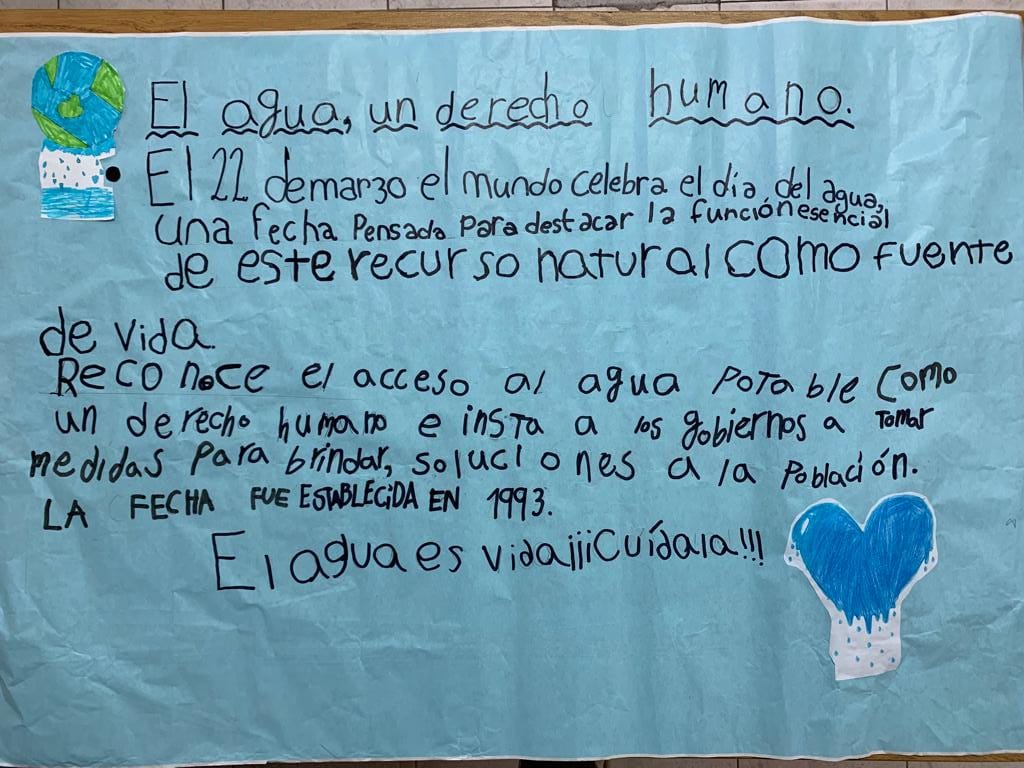 El agua, un derecho humano.
El 22 de marzo el mundo celebra el día del agua,
una fecha Pensada para destacar la función esencial
de este recurso natural como fuente
de vida.
Reconoce el acceso al agua potable como
un derecho humano e insta a los gobiernos a tomar
medidas para brindar, soluciones a la población.
LA FECHA FUE ESTABLECIDA EN 1993.
El agua es vida ¡¡¡Cuídala!!!